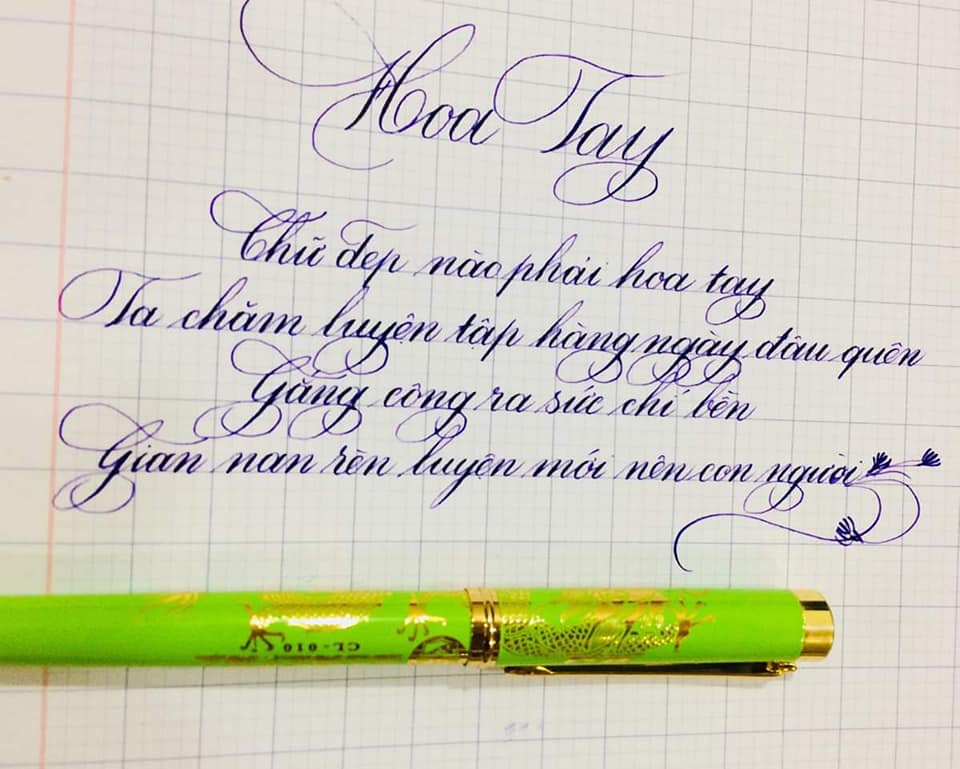 Hoa Tay
Chữ đẹp nào phải hoa tay
Ta chăm luyện tập hàng ngày đâu quên
Gắng công ra sức chí bền
Gian nan rèn luyện mới nên con người
CL-010